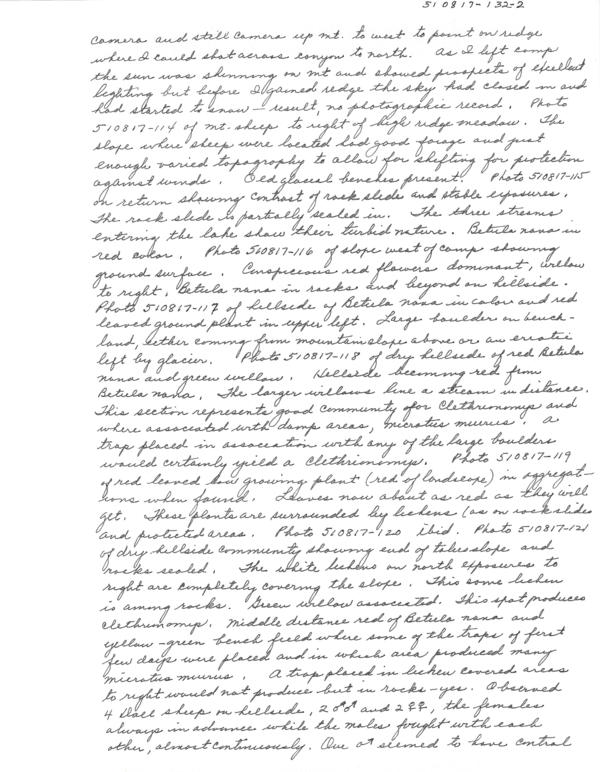 510817-132-2
camera and still camera up mt. to west to point on ridge
where I could shot across canyon to north. As I left camp
the sun was shinning on mt and showed prospects of excellent
lighting but before I gained redge the sky had closed in and
had started to snow - result, no photographic record. Photo
510817-114 of mt. sheep to right of high ridge meadow. The
slope where sheep were located had good forage and just
enough varied topography to allow for shifting for protection
against winds. Old glacial benches present. Photo 510817-115
on return showing contrast of rock slide and stable exposures.
The rock slide is partially sealed in. The three streams
entering the lake show their turbid nature. Betula nana in
red color. Photo 510817-116 of slope west of camp showing
ground surface. Conspicuous red flowers dominant, willow
to right, Betula nana in rocks and beyond on hillside.
Photo 510817-117 of hillside of Betula nana in color and red
leaved ground plant in upper left. Large boulder on bench-
land, either coming from mountain slope above or an erratic
left by glacier. Photo 510817-118 of dry hillside of red Betula
nana and green willow. Hillside becoming red from
Betula nana. The larger willows line a stream in distance.
This section represents good community for Clethrionomys and
where associated with damp areas, microtus muirus. A
trap placed in association with any of the large boulders
would certainly yield a Clethrionomys. Photo 510817-119
of red leaved low growing plant (red of landscope) in aggregat-
ions when found. Leaves now about as red as they will
get. These plants are surrounded by lichens (as on rock slides
and protected areas. Photo 510817-120 ibid. Photo 510817-121
of dry hillside community showing end of talus slope and
rocks sealed. The white lichens on north exposures to
right are completely covering the slope. This same lichen
is among rocks. Green willow associated. This spot produces
clethrionomys. Middle distance red of Betula nana and
yellow-green bench field where some of the traps of first
few days were placed and in which area produced many
microtus muirus. A trap placed in lichen covered areas
to right would not produce but in rocks - yes. Observed
4 Dall sheep on hillside, 2♂♂ and 2♀♀, the females
always in advance while the males fought with each
other, almost continuously. One ♂ seemed to have control